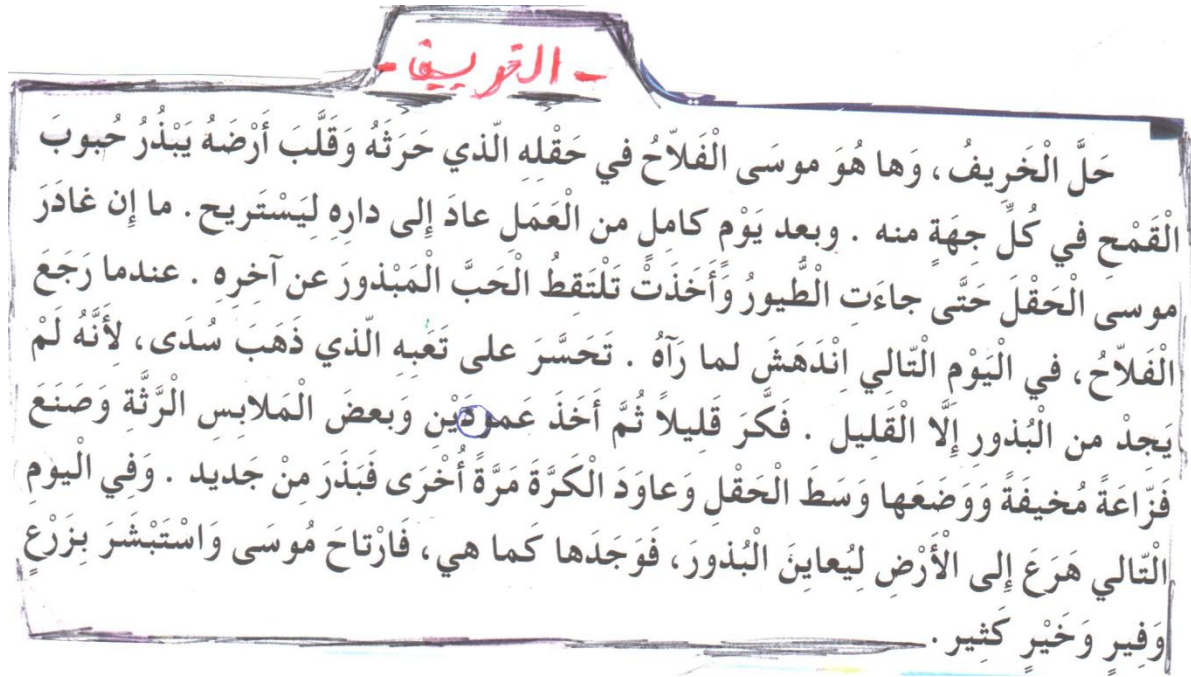 - الخريف -
حَلَّ الْخَرِيفُ ، وَها هُوَ موسَى الْفَلاّحُ في حَقْلِهِ الّذي حَرَثَهُ وَقَلَّبَ أَرْضَهُ يَبْذُرُ حُبوبَ
الْقَمْحِ في كُلِّ جِهَةٍ منه . وبعد يَوْمٍ كامِلٍ من الْعَمَلِ عادَ إِلى دارِهِ لِيَسْتَريح . ما إِن غادَرَ
موسى الْحَقْلَ حَتَّى جاءَتِ الْطُّيورُ وَأَخَذَتْ تَلْتَقِطُ الْحَبَّ الْمَبْذورَ عن آخِرِه . عندما رَجَعَ
الْفَلاّحُ، في الْيَوْمِ الْتّالي اِنْدَهَشَ لما رَآهُ . تَحَسَّرَ على تَعَبِهِ الّذي ذَهَبَ سُدَى، لِأَنَّهُ لَمْ
يَجِدْ من الْبُذورِ إِلَّا الْقَلِيل . فَكَّرَ قَليلاً ثُمَّ أخَذَ عَمودَيْنِ وَبعضَ الْمَلابِسِ الْرَّثَّةِ وَصَنَعَ
فَزّاعَةً مُخيفَةً وَوَضَعَها وَسَطَ الْحَقْلِ وَعاوَدَ الْكَرَّةَ مَرَّةً أُخْرَى فَبَذَرَ مِنْ جَديد . وَفي الْيومِ
الْتّالي هَرَعَ إِلى الْأَرْضِ لِيُعاينَ الْبُذورَ، فَوَجَدَها كما هي، فَارْتاحَ مُوسَى وَاسْتَبْشَرَ بِزَرْعٍ
وَفِيرٍ وَخَيْرٍ كَثِير .